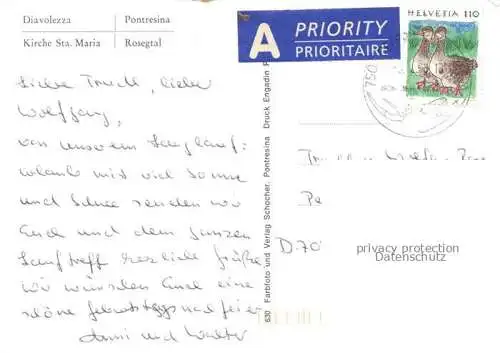 Diavolezza Pontresina
Kirche Sta. Maria Rosegtal
A PRIORITY
PRIORITAIRE
HELVETIA 110
750
Liebe Trudi, lieber
Wolfgang,
von unserem Langlauf-
urlaub mit viel Sonne
und Schnee senden wir
Euch und dem ganzen
Lauftreff herzliche Grüße
wir wünschen Euch eine
schöne Geburtstagsnachfeier
und Walter
630 Farbfoto und Verlag Schocher, Pontresina Druck Engadin
D. 70
privacy protection
Datenschutz